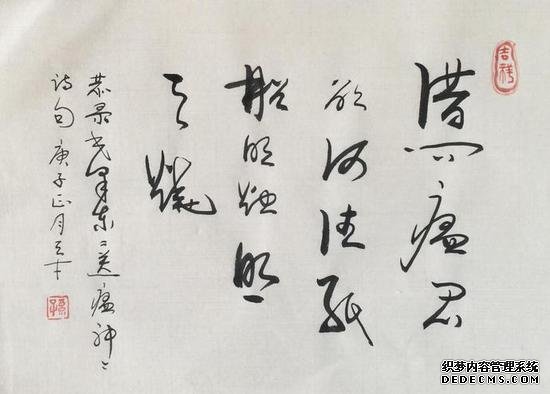 吉祥
借问瘟君
欲何往纸
船明烛照
天烧
恭录毛泽东"送瘟神"
诗句 庚子正月
织梦内容管理系统
DEDECMS.COM